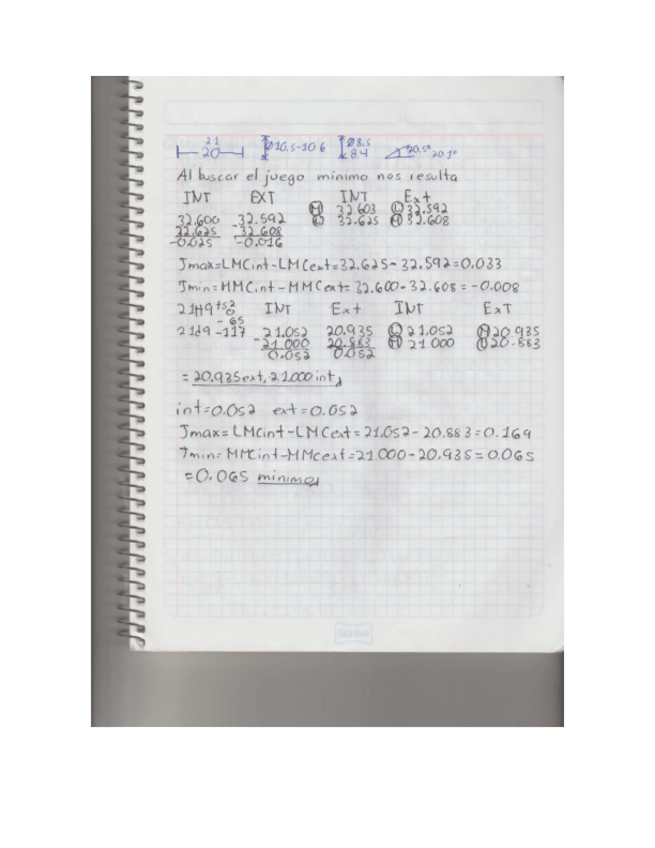 21
20
Ø10.5-10.6
Ø8.5
8.4
20.5° 20.1°
Al buscar el juego minimo nos resulta
INT EXT INT Ext
M 32.603 L 32.592
32.600 -32.592 L 32.625 M 32.608
32.625 32.608
-0.025 -0.016
Jmax=LMCint-LMCext=32.625-32.592=0.033
Jmin=MMCint-MMCext=32.600-32.608=-0.008
21H9 +52 0 INT Ext INT ExT
21d9 -65 -117 21.052 20.935 L 21.052 M 20.935
-21.000 20.883 M 21.000 L 20.883
0.052 0.052
=20.935ext, 21.000int
int=0.052 ext=0.052
Jmax=LMCint-LMCext=21.052-20.883=0.169
Jmin=MMCint-MMCext=21.000-20.935=0.065
=0.065 minimo
Scribe